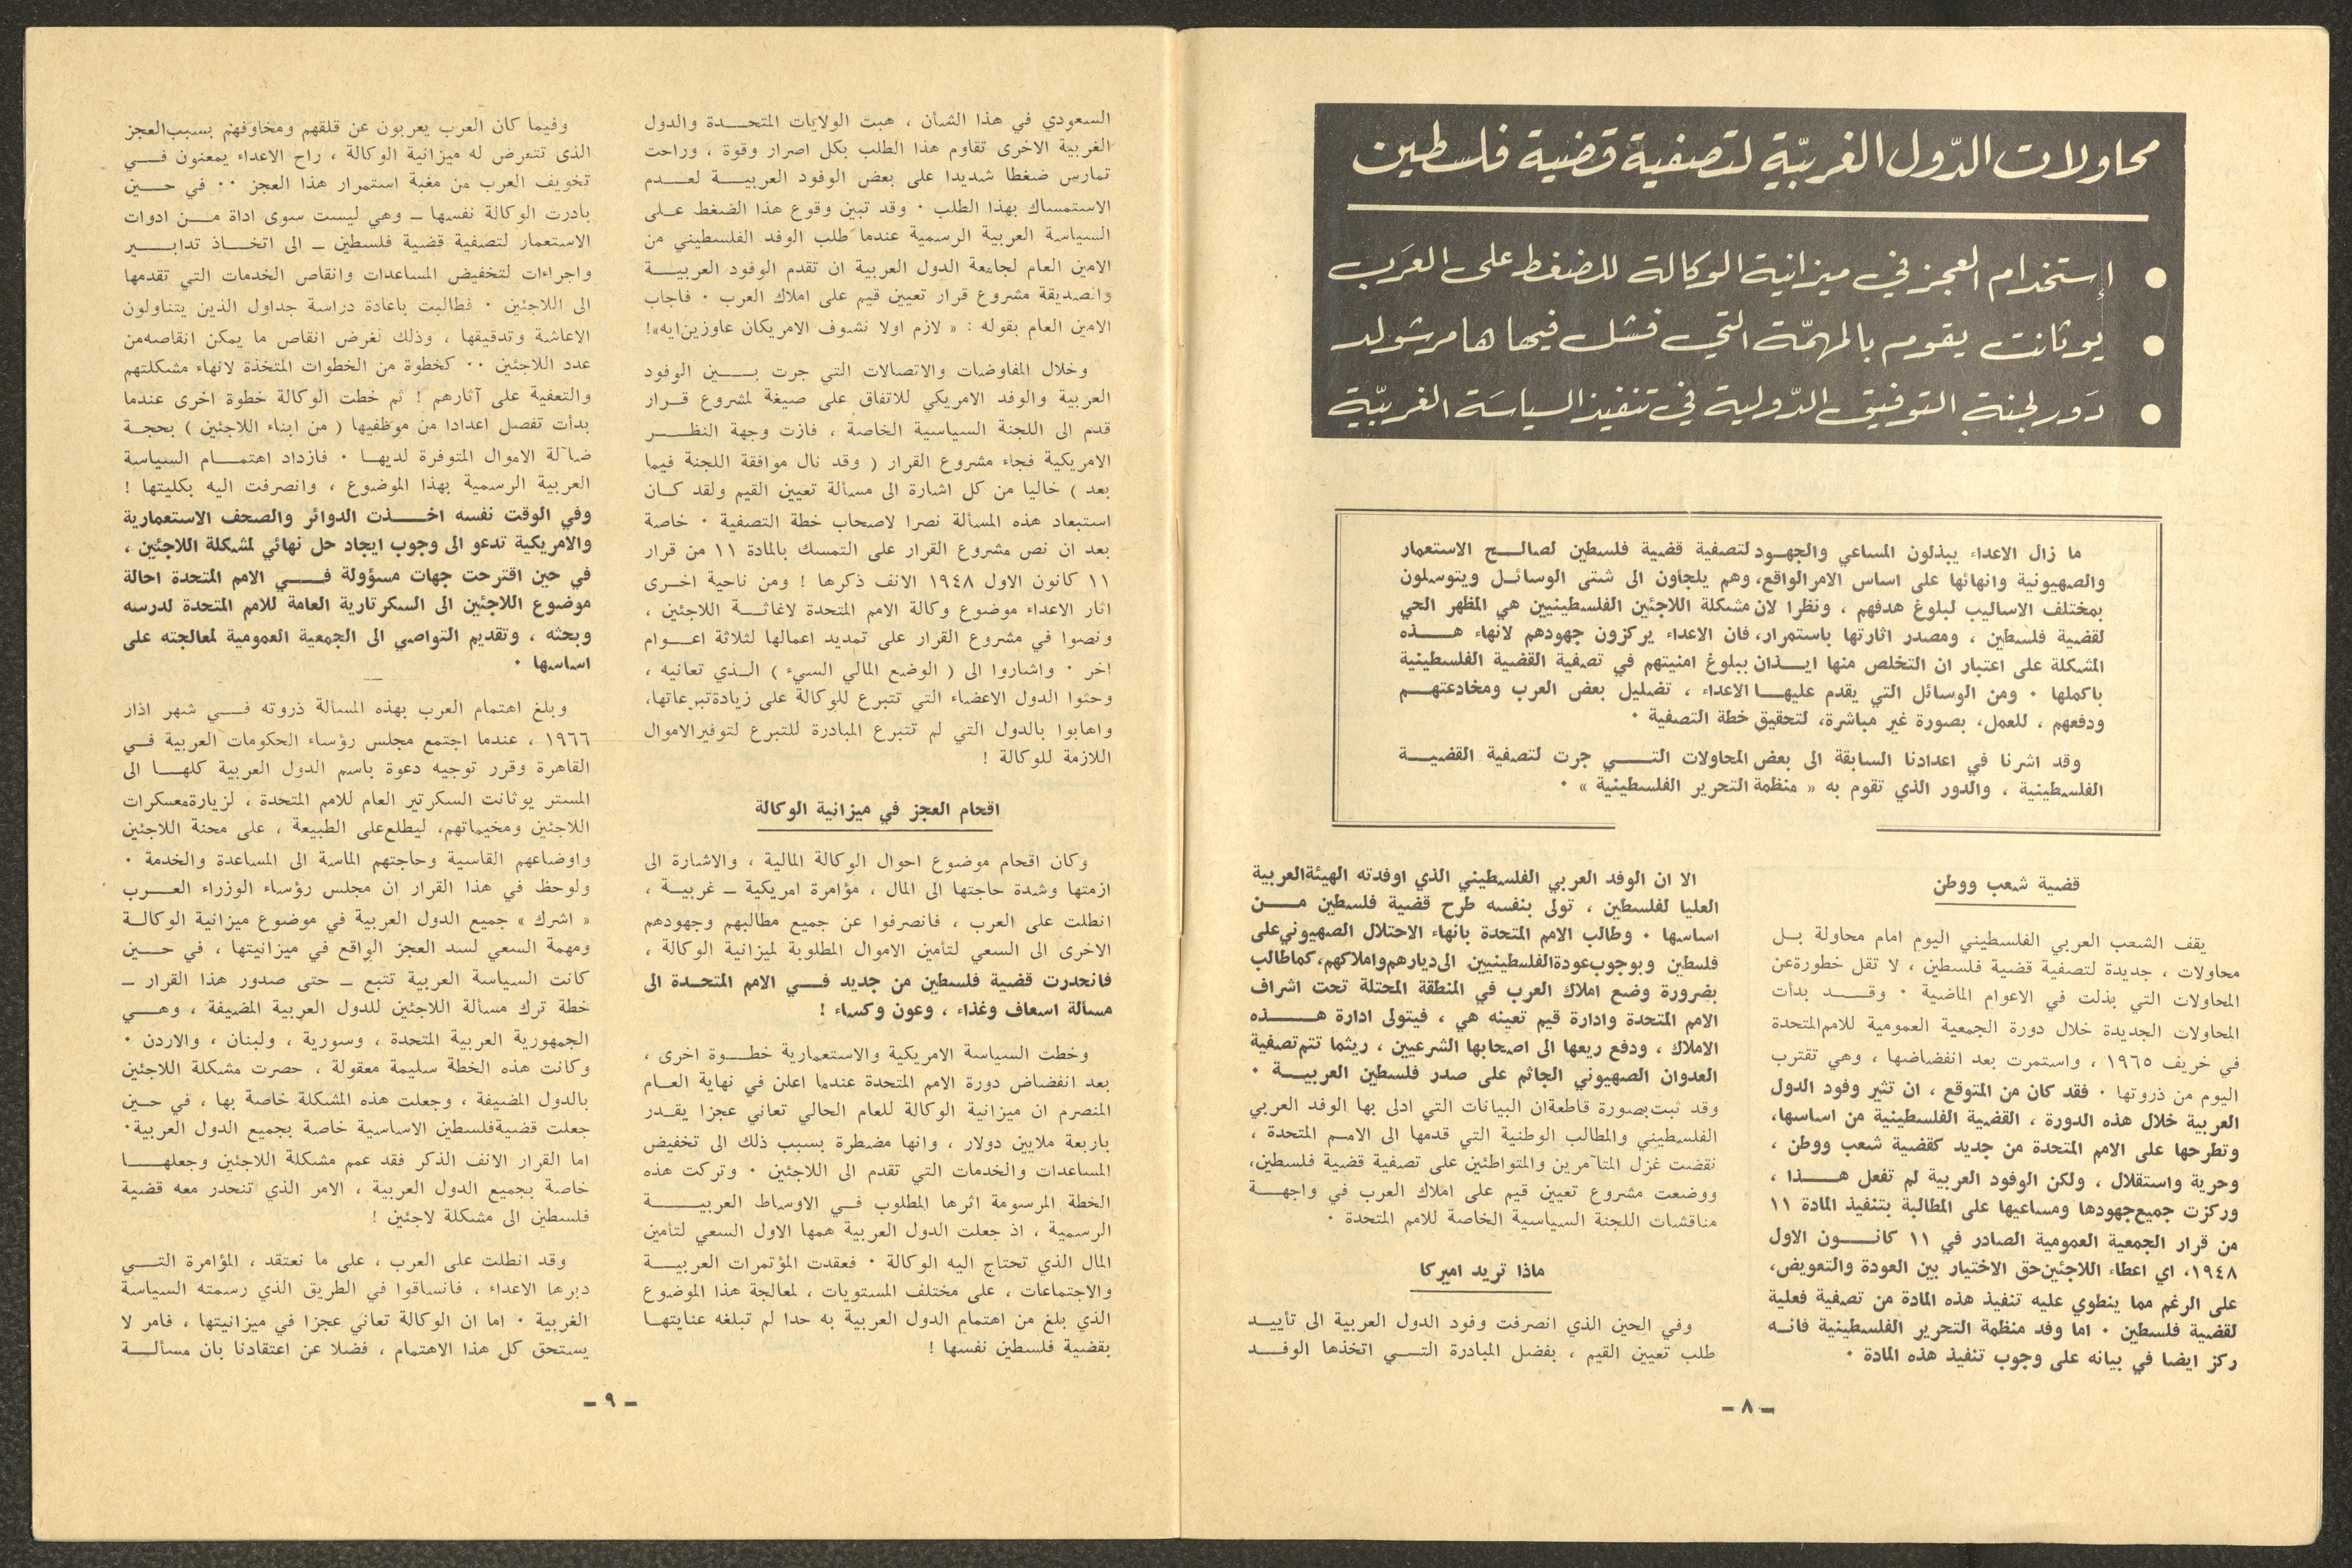 محاولات الدّول الغربيّة لتصفية قضية فلسطين
● إستخدام العجز في ميزانية الوكالة للضغط على العَرَب
● يوثانت يقوم بالمهمّة التي فشل فيها هامرشولد
● دَور لجنة التوفيق الدّولية في تنفيذ السياسَة الغربيّة
ما زال الاعداء يبذلون المساعي والجهـود لتصفية قضية فلسطين لصالـح الاستعمار
والصهيونية وانهائها على اساس الامر الواقع، وهم يلجأون الى شتى الوسائـل ويتوسلون
بمختلف الاساليب لبلوغ هدفهم ، ونظرا لان مشكلة اللاجئين الفلسطينيين هي المظهر الحي
لقضية فلسطين ، ومصدر اثارتها باستمرار، فان الاعداء يركزون جهودهم لانهاء هـــذه
المشكلة على اعتبار ان التخلص منها ايـذان ببلوغ امنيتهم في تصفية القضية الفلسطينية
باكملها ٠ ومن الوسائل التي يقدم عليهـا الاعداء ، تضليل بعض العرب ومخادعتهـم
ودفعهم ، للعمل، بصورة غير مباشرة، لتحقيق خطة التصفية ٠
وقد اشرنا في اعدادنا السابقة الى بعض المحاولات التـي جرت لتصفية القضيـة
الفلسطينية ، والدور الذي تقوم به « منظمة التحرير الفلسطينية » ٠
قضية شعب ووطن
يقف الشعب العربي الفلسطيني اليوم امام محاولة بـل
محاولات ، جديدة لتصفية قضية فلسطين ، لا تقل خطورة عن
المحاولات التي بذلت في الاعوام الماضية ٠ وقـد بدأت
المحاولات الجديدة خلال دورة الجمعية العمومية للامم المتحدة
في خريف ١٩٦٥ ، واستمرت بعد انفضاضها ، وهي تقترب
اليوم من ذروتها ٠ فقد كان من المتوقع ، ان تثير وفود الدول
العربية خلال هذه الدورة ، القضية الفلسطينية من اساسها،
وتطرحها على الامم المتحدة من جديد كقضية شعب ووطن ،
وحرية واستقلال ، ولكن الوفود العربية لم تفعل هـــذا ،
وركزت جميع جهودها ومساعيها على المطالبة بتنفيذ المادة ١١
من قرار الجمعية العمومية الصادر في ١١ كانـون الاول
١٩٤٨، اي اعطاء اللاجئين حق الاختيار بين العودة والتعويض،
على الرغم مما ينطوي عليه تنفيذ هذه المادة من تصفية فعلية
لقضية فلسطين ٠ اما وفد منظمة التحرير الفلسطينية فانـه
ركز ايضا في بيانه على وجوب تنفيذ هذه المادة ٠
الا ان الوفد العربي الفلسطيني الذي اوفدته الهيئة العربية
العليا لفلسطين ، تولى بنفسه طرح قضية فلسطين مـن
اساسها ٠ وطالب الامم المتحدة بانهاء الاحتلال الصهيوني على
فلسطين وبوجوب عودة الفلسطينيين الى ديارهم واملاكهم، كما طالب
بضرورة وضع املاك العرب في المنطقة المحتلة تحت اشراف
الامم المتحدة وادارة قيم تعينه هي ، فيتولى ادارة هـــذه
الاملاك ، ودفع ريعها الى اصحابها الشرعيين ، ريثما تتم تصفية
العدوان الصهيوني الجاثم على صدر فلسطين العربيـة ٠
وقد ثبت بصورة قاطعة ان البيانات التي ادلى بها الوفد العربي
الفلسطيني والمطالب الوطنية التي قدمها الى الامـم المتحدة ،
نقضت غزل المتآمرين والمتواطئين على تصفية قضية فلسطين،
ووضعت مشروع تعيين قيم على املاك العرب في واجهـة
مناقشات اللجنة السياسية الخاصة للامم المتحدة ٠
ماذا تريد اميركا
وفي الحين الذي انصرفت وفود الدول العربية الى تأييـد
طلب تعيين القيم ، بفضل المبادرة التـي اتخذها الوفـد
ـ ٨ ـ
السعودي في هذا الشأن ، هبت الولايات المتحـدة والدول
الغربية الاخرى تقاوم هذا الطلب بكل اصرار وقوة ، وراحت
تمارس ضغطا شديدا على بعض الوفود العربيـة لعـدم
الاستمساك بهذا الطلب ٠ وقد تبين وقوع هذا الضغط علـى
السياسة العربية الرسمية عندما طلب الوفد الفلسطيني من
الامين العام لجامعة الدول العربية ان تقدم الوفود العربيـة
والصديقة مشروع قرار تعيين قيم على املاك العرب ٠ فاجاب
الامين العام بقوله : « لازم اولا نشوف الامريكان عاوزين ايه»!
وخلال المفاوضات والاتصالات التي جرت بـين الوفود
العربية والوفد الامريكي للاتفاق على صيغة لمشروع قـرار
قدم الى اللجنة السياسية الخاصة ، فازت وجهة النظـر
الامريكية فجاء مشروع القرار ( وقد نال موافقة اللجنة فيما
بعد ) خاليا من كل اشارة الى مسألة تعيين القيم ولقد كـان
استبعاد هذه المسألة نصرا لاصحاب خطة التصفية ٠ خاصة
بعد ان نص مشروع القرار على التمسك بالمادة ١١ من قرار
١١ كانون الاول ١٩٤٨ الانف ذكرها ! ومن ناحية اخـرى
اثار الاعداء موضوع وكالة الامم المتحدة لاغاثـة اللاجئين ،
ونصوا في مشروع القرار على تمديد اعمالها لثلاثة اعـوام
اخر ٠ واشاروا الى ( الوضع المالي السيء ) الـذي تعانيه ،
وحثوا الدول الاعضاء التي تتبرع للوكالة على زيادة تبرعاتها،
واهابوا بالدول التي لم تتبرع المبادرة للتبرع لتوفير الاموال
اللازمة للوكالة !
اقحام العجز في ميزانية الوكالة
وكان اقحام موضوع احوال الوكالة المالية ، والاشارة الى
ازمتها وشدة حاجتها الى المال ، مؤامرة امريكية ـ غربيـة ،
انطلت على العرب ، فانصرفوا عن جميع مطالبهم وجهودهم
الاخرى الى السعي لتأمين الاموال المطلوبة لميزانية الوكالة ،
فانحدرت قضية فلسطين من جديد فـي الامم المتحـدة الى
مسألة اسعاف وغذاء ، وعون وكساء !
وخطت السياسة الامريكية والاستعمارية خطـوة اخرى ،
بعد انفضاض دورة الامم المتحدة عندما اعلن في نهاية العـام
المنصرم ان ميزانية الوكالة للعام الحالي تعاني عجزا يقـدر
باربعة ملايين دولار ، وانها مضطرة بسبب ذلك الى تخفيض
المساعدات والخدمات التي تقدم الى اللاجئين ٠ وتركت هذه
الخطة المرسومة اثرها المطلوب فـي الاوساط العربيـــة
الرسمية ، اذ جعلت الدول العربية همها الاول السعي لتأمين
المال الذي تحتاج اليه الوكالة ٠ فعقدت المؤتمرات العربيـة
والاجتماعات ، على مختلف المستويات ، لمعالجة هذا الموضوع
الذي بلغ من اهتمام الدول العربية به حدا لم تبلغه عنايتهـا
بقضية فلسطين نفسها !
وفيما كان العرب يعربون عن قلقهم ومخاوفهم بسبب العجز
الذى تتعرض له ميزانية الوكالة ، راح الاعداء يمعنون فـي
تخويف العرب من مغبة استمرار هذا العجز ٠٠ في حـين
بادرت الوكالة نفسها ـ وهي ليست سوى اداة مـن ادوات
الاستعمار لتصفية قضية فلسطين ـ الى اتخـاذ تدابـير
واجراءات لتخفيض المساعدات وانقاص الخدمات التي تقدمها
الى اللاجئين ٠ فطالبت باعادة دراسة جداول الذين يتناولون
الاعاشة وتدقيقها ، وذلك لغرض انقاص ما يمكن انقاصه من
عدد اللاجئين ٠٠ كخطوة من الخطوات المتخذة لانهاء مشكلتهم
والتعفية على آثارهم ! ثم خطت الوكالة خطوة اخرى عندما
بدأت تفصل اعدادا من موظفيها ( من ابناء اللاجئين ) بحجـة
ضآلة الاموال المتوفرة لديهـا ٠ فازداد اهتمـام السياسة
العربية الرسمية بهذا الموضوع ، وانصرفت اليه بكليتها !
وفي الوقت نفسه اخــذت الدوائر والصحف الاستعمارية
والامريكية تدعو الى وجوب ايجاد حل نهائي لمشكلة اللاجئين ،
في حين اقترحت جهات مسؤولة فــي الامم المتحدة احالة
موضوع اللاجئين الى السكرتارية العامة للامم المتحدة لدرسه
وبحثه ، وتقديم التواصي الى الجمعية العمومية لمعالجته على
اساسها ٠
وبلغ اهتمام العرب بهذه المسألة ذروته فـي شهر اذار
١٩٦٦ ، عندما اجتمع مجلس رؤساء الحكومات العربية فـي
القاهرة وقرر توجيه دعوة باسم الدول العربية كلهـا الى
المستر يوثانت السكرتير العام للامم المتحدة ، لزيارة معسكرات
اللاجئين ومخيماتهم، ليطلع على الطبيعة ، على محنة اللاجئين
واوضاعهم القاسية وحاجتهم الماسة الى المساعدة والخدمة ٠
ولوحظ في هذا القرار ان مجلس رؤساء الوزراء العـرب
« اشرك » جميع الدول العربية في موضوع ميزانية الوكالـة
ومهمة السعي لسد العجز الواقع في ميزانيتها ، في حـين
كانت السياسة العربية تتبع ـ حتى صدور هذا القرار ـ
خطة ترك مسألة اللاجئين للدول العربية المضيفة ، وهـي
الجمهورية العربية المتحدة ، وسورية ، ولبنان ، والاردن ٠
وكانت هذه الخطة سليمة معقولة ، حصرت مشكلة اللاجئين
بالدول المضيفة ، وجعلت هذه المشكلة خاصة بها ، في حـين
جعلت قضية فلسطين الاساسية خاصة بجميع الدول العربية٠
اما القرار الانف الذكر فقد عمم مشكلة اللاجئين وجعلهـا
خاصة بجميع الدول العربية ، الامر الذي تنحدر معه قضية
فلسطين الى مشكلة لاجئين !
وقد انطلت على العرب ، على ما نعتقد ، المؤامرة التـي
دبرها الاعداء ، فانساقوا في الطريق الذي رسمته السياسة
الغربية ٠ اما ان الوكالة تعاني عجزا في ميزانيتها ، فامر لا
يستحق كل هذا الاهتمام ، فضلا عن اعتقادنا بان مسألـة
ـ ٩ ـ